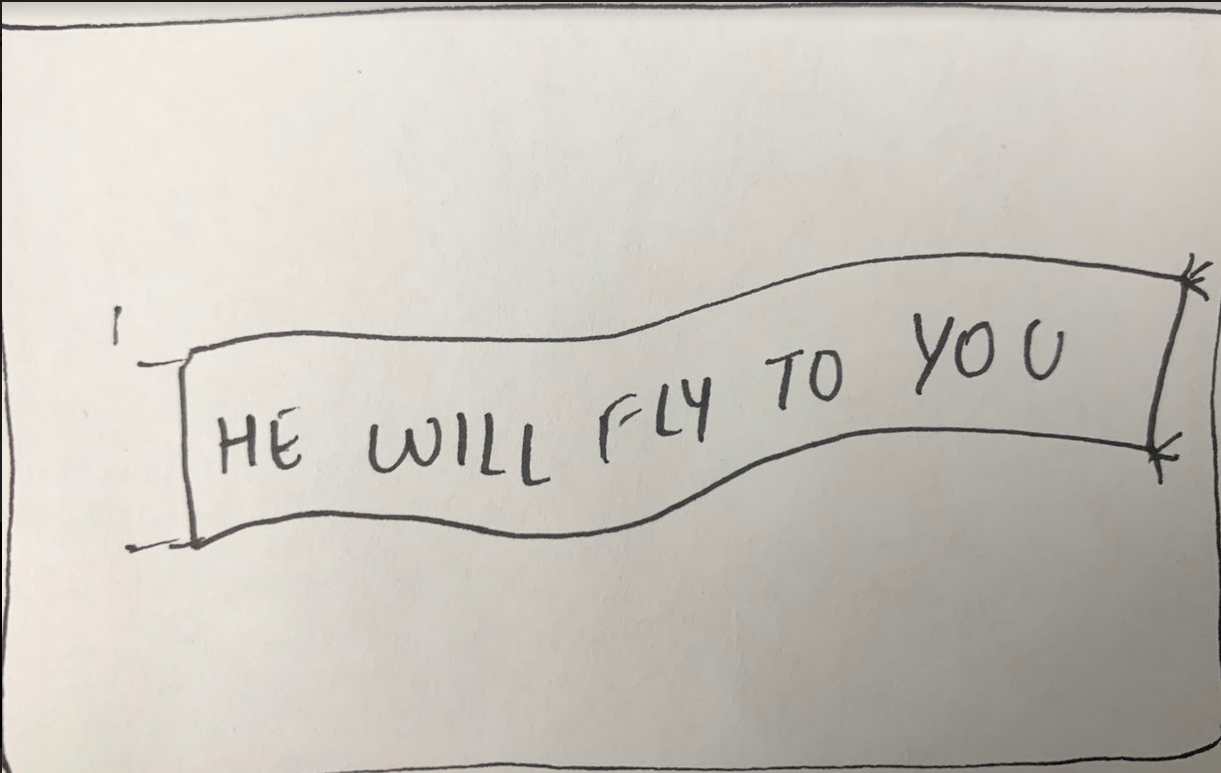 HE WILL FLY TO YOU